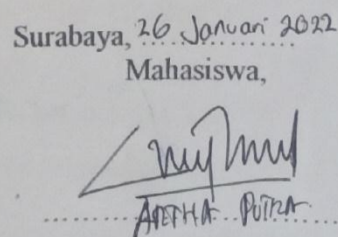 Surabaya, 26 Januari 2022
Mahasiswa,
PUTRA